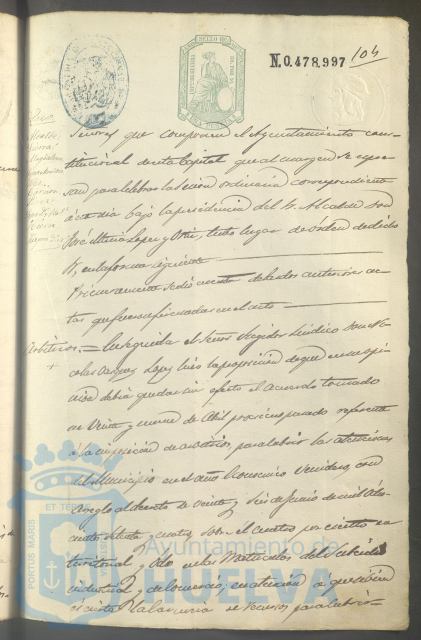 SELLO 10º
N.0.478,997 104
Señores que componen el Ayuntamiento cons-
titucional de esta Capital que al margen se expre-
san para celebrar la sesion ordinaria correspondiente
á este dia bajo la presidencia del Sr. Alcalde Don
José Maria Lopez y Ortiz, tuvo lugar de orden de dicho
Sr. en la forma siguiente
Primeramente se dió cuenta de las dos anteriores ac-
tas que fueron aprobadas en el acto
Arbitrios. = En seguida el Señor Regidor Síndico Don Ni-
colás Vazquez Lopez hizo la proposicion de que en su opi-
nion debia quedar sin efecto el Acuerdo tomado
en Veinte y nueve de Abril proximo pasado referente
á la imposicion de arbitrios, para cubrir las atenciones
del Municipio en el año Economico Venidero, con
arreglo al decreto de veinte y seis de Junio de mil ocho-
cientos setenta y cuatro sobre el cuatro por ciento en
territorial, y en las Matriculas del Subsidio
industrial y de Comercio; en atencion a que
la recursos para cubrir
ET TERRÆ
PORTUS MARIS
Ayuntamiento de
HUELVA